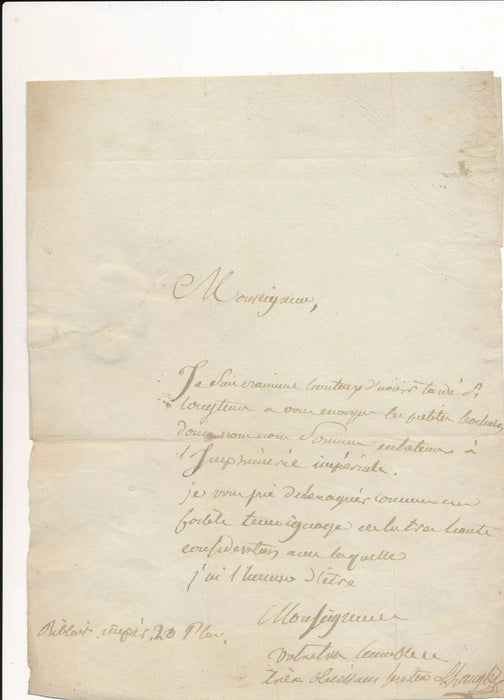 Monseigneur,
Je suis vraiment honteux d'avoir tardé si
longtems a vous envoyer les petites
dont nous nous sommes à
l'Imprimerie impériale.
je vous prie de les agréer comme un
foible temoignage de la tres haute
consideration avec laquelle
j'ai l'honneur d'être
Monseigneur
Votre tres humble et
très obeissant
Biblioth impér. 20 Pluv.